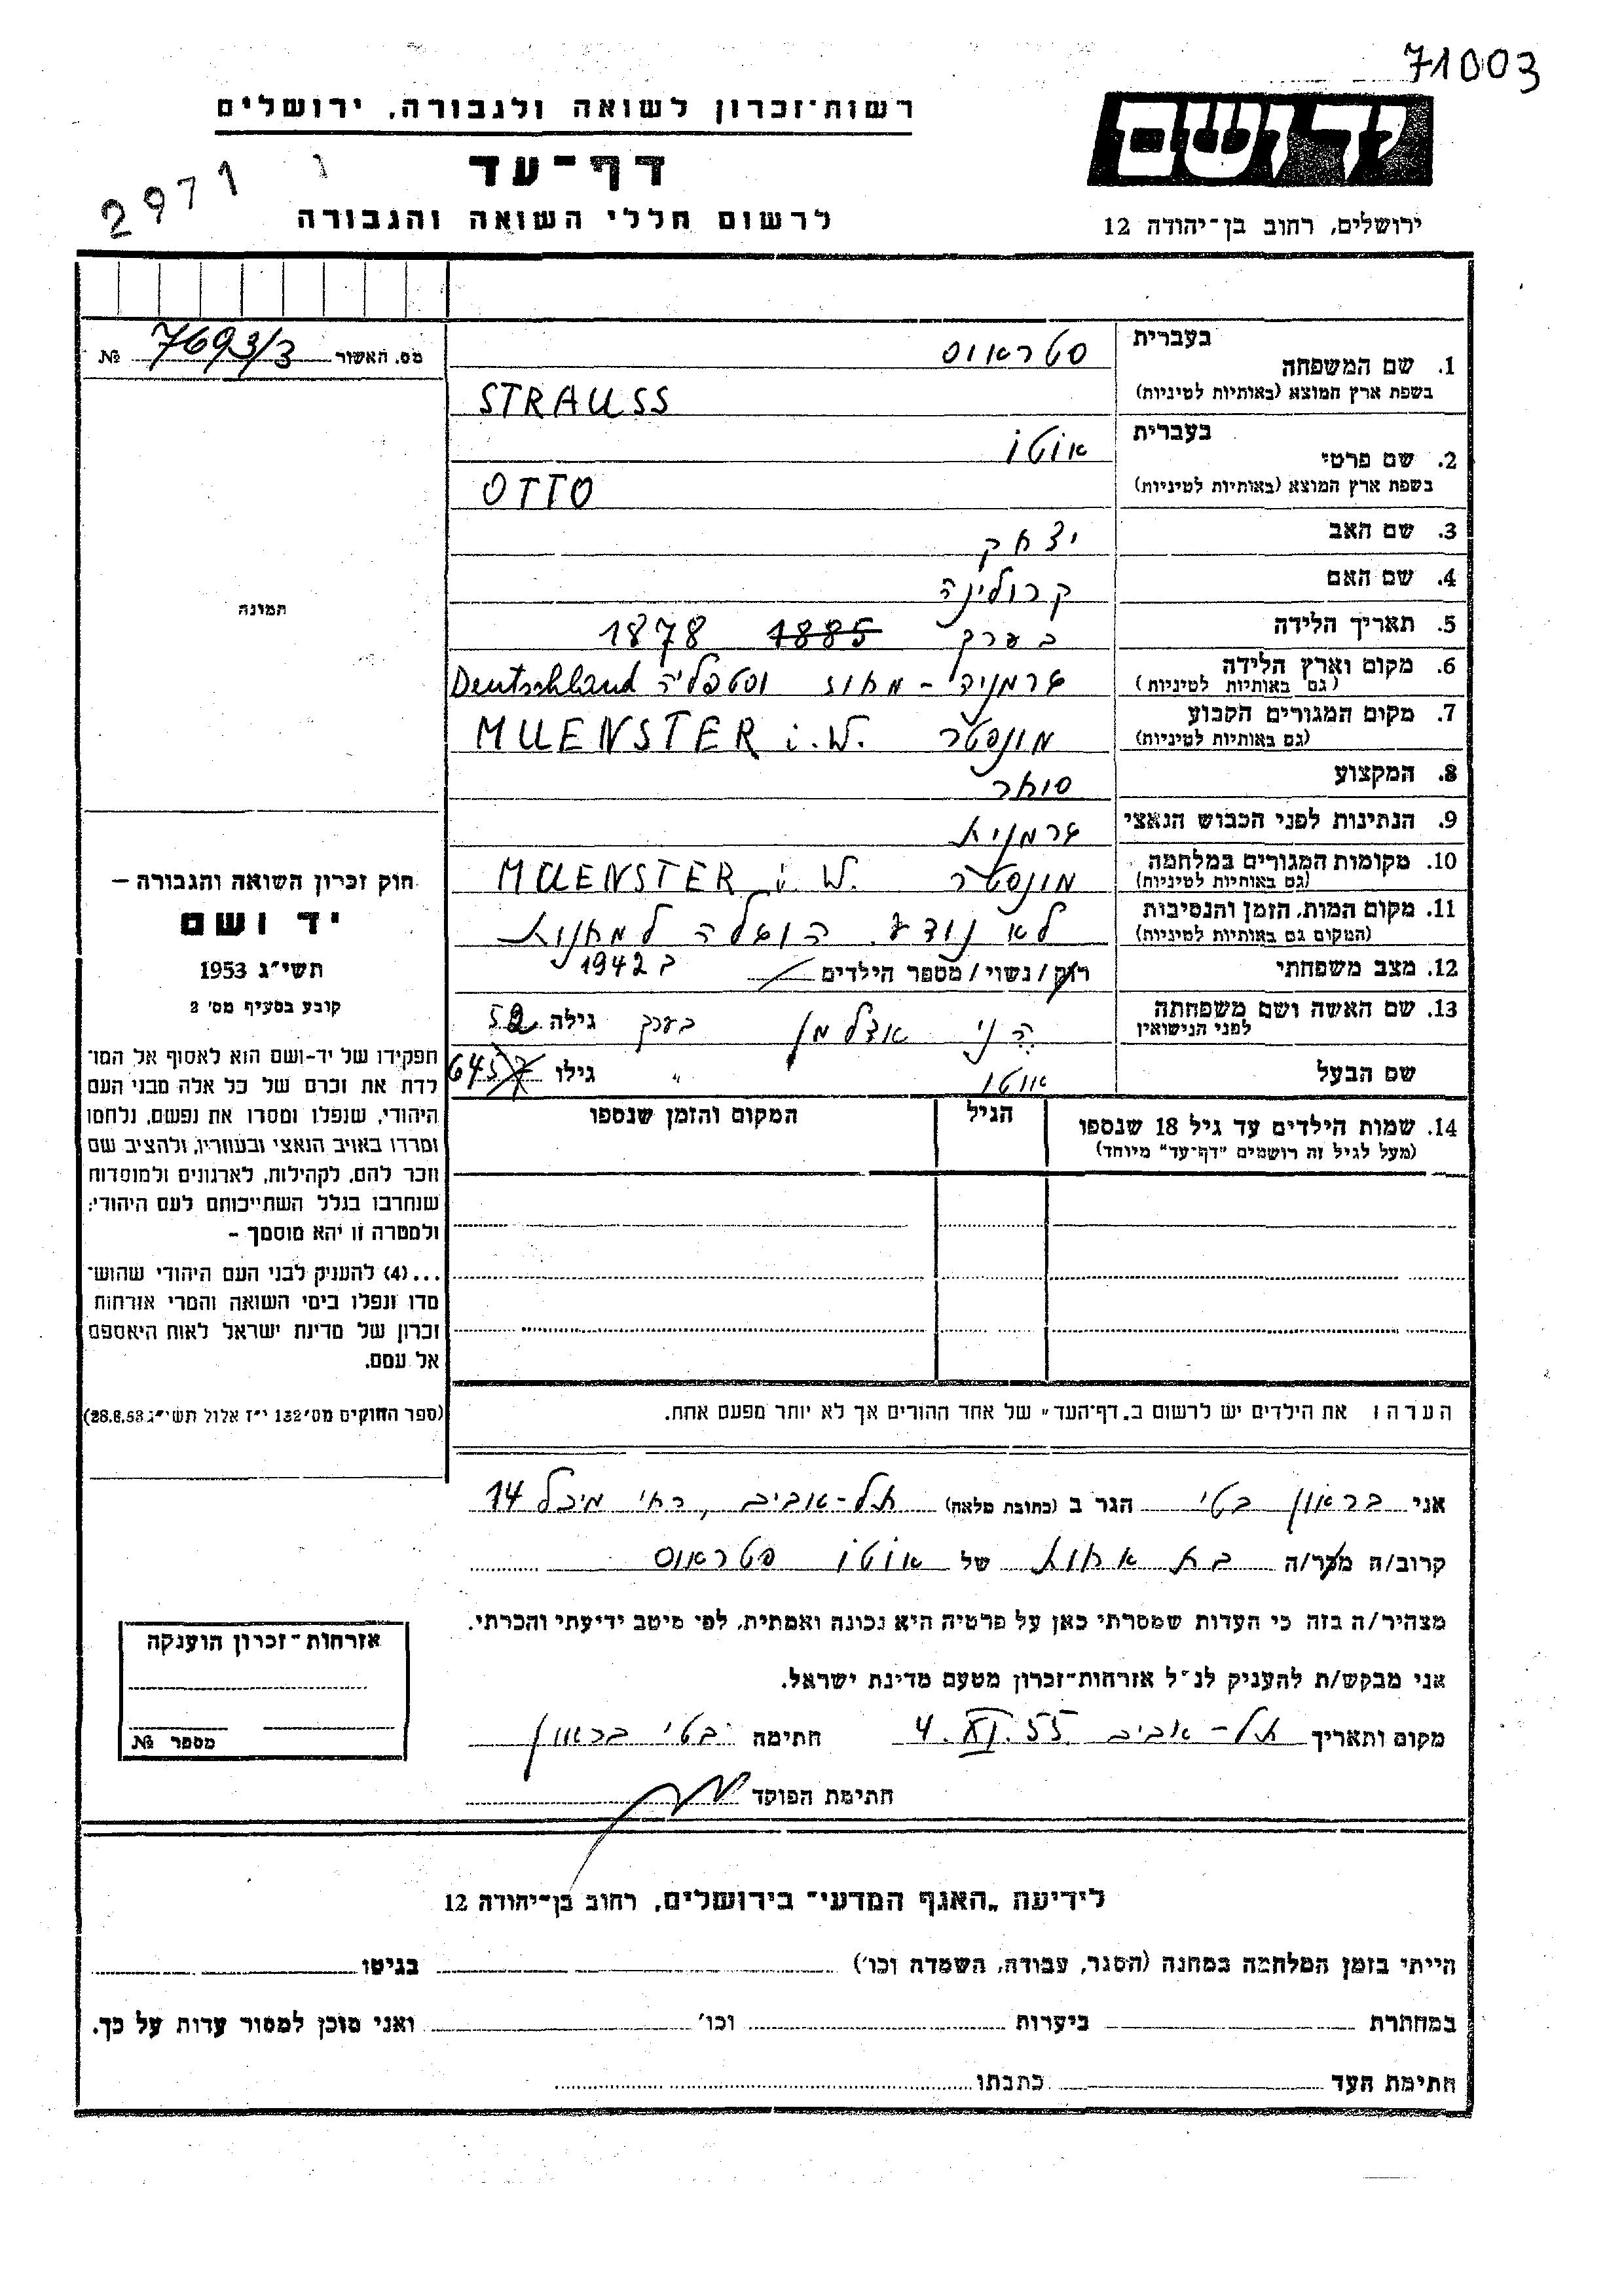 71003
רשות־זכרון לשואה ולגבורה, ירושלים
יד ושם
דף־עד
2971
לרשום חללי השואה והגבורה
ירושלים, רחוב בן־יהודה 12
מס. האשור 7693/3 №
1. שם המשפחה בעברית סטראוס
בשפת ארץ המוצא (באותיות לטיניות) STRAUSS
2. שם פרטי בעברית אוטו
בשפת ארץ המוצא (באותיות לטיניות) OTTO
3. שם האב יצחק
4. שם האם קרולינה
5. תאריך הלידה בערך 1885 1878
6. מקום וארץ הלידה (גם באותיות לטיניות) גרמניה - מחוז וסטפליה Deutschland
7. מקום המגורים הקבוע (גם באותיות לטיניות) מונסטר MUENSTER i. W.
8. המקצוע סוחר
9. הנתינות לפני הכבוש הנאצי גרמנית
10. מקומות המגורים במלחמה (גם באותיות לטיניות) מונסטר MUENSTER i. W.
11. מקום המות, הזמן והנסיבות (המקום גם באותיות לטיניות) לא נודע. הוגלה למחנות
ב 1942
12. מצב משפחתי רוק/נשוי/מספר הילדים
13. שם האשה ושם משפחתה לפני הנישואין הני אדלמן בערך גילה 52
שם הבעל אוטו " גילו 64
14. שמות הילדים עד גיל 18 שנספו (מעל לגיל זה רושמים "דף־עד" מיוחד) הגיל המקום והזמן שנספו
הערה: את הילדים יש לרשום ב„דף־העד" של אחד ההורים אך לא יותר מפעם אחת.
התמונה
חוק זכרון השואה והגבורה –
יד ושם
תשי"ג 1953
קובע בסעיף מס' 2
תפקידו של יד-ושם הוא לאסוף אל המו־
לדת את זכרם של כל אלה מבני העם
היהודי, שנפלו ומסרו את נפשם, נלחמו
ומרדו באויב הנאצי ובעוזריו, ולהציב שם
וזכר להם, לקהילות, לארגונים ולמוסדות
שנחרבו בגלל השתייכותם לעם היהודי;
ולמטרה זו יהא מוסמך –
...(4) להעניק לבני העם היהודי שהוש־
מדו ונפלו בימי השואה והמרי אזרחות
זכרון של מדינת ישראל לאות היאספם
אל עמם.
(ספר החוקים מס' 132 י"ז אלול תשי"ג 28.8.53)
אני בראון בטי הגר ב (כתובת מלאה) תל-אביב, רח' מיכל 14
קרוב/ה מכר/ה בת אחות של אוטו סטראוס
מצהיר/ה בזה כי העדות שמסרתי כאן על פרטיה היא נכונה ואמתית, לפי מיטב ידיעתי והכרתי.
אני מבקש/ת להעניק לנ"ל אזרחות־זכרון מטעם מדינת ישראל.
מקום ותאריך תל-אביב 4. XI. 55 חתימה בטי בראון
חתימת הפוקד
אזרחות־זכרון הוענקה
מספר №
לידיעת „האגף המדעי" בירושלים, רחוב בן־יהודה 12
הייתי בזמן המלחמה במחנה (הסגר, עבודה, השמדה וכו') בגיטו
במחתרת ביערות וכו' ואני מוכן למסור עדות על כך.
חתימת העד כתבתו